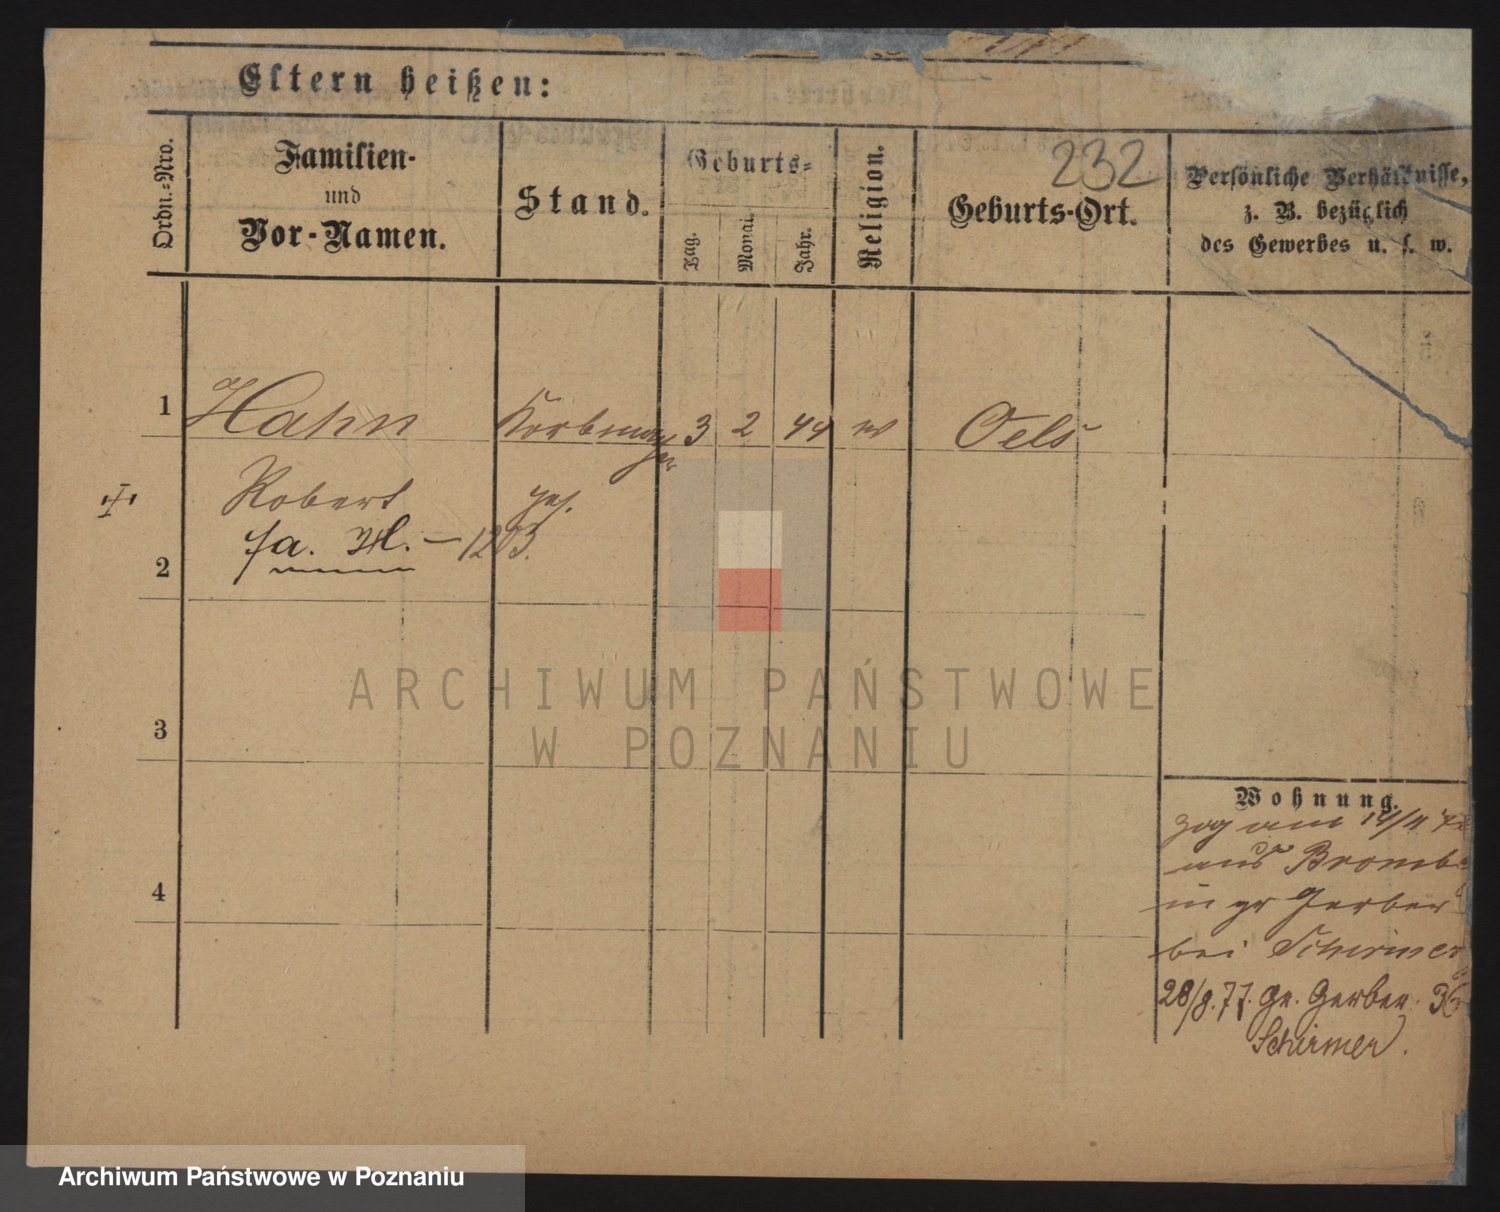 Eltern heißen:
232
Ordn.-Nro.
Familien-
und
Vor-Namen.
Stand.
Geburts-
Tag.
Monat.
Jahr.
Religion.
Geburts-Ort.
Persönliche Verhältnisse,
z. B. bezüglich
des Gewerbes u. s. w.
1 Hahn 3 2 44 Oels
Robert ges.
fa. M. – 1203.
2
3
4
ARCHIWUM PAŃSTWOWE
W POZNANIU
Wohnung.
zog am 14/11
aus Bromb
in gr Gerber
bei Schirmer
28/9.77. Gr. Gerber. 36
Schirmer.
Archiwum Państwowe w Poznaniu